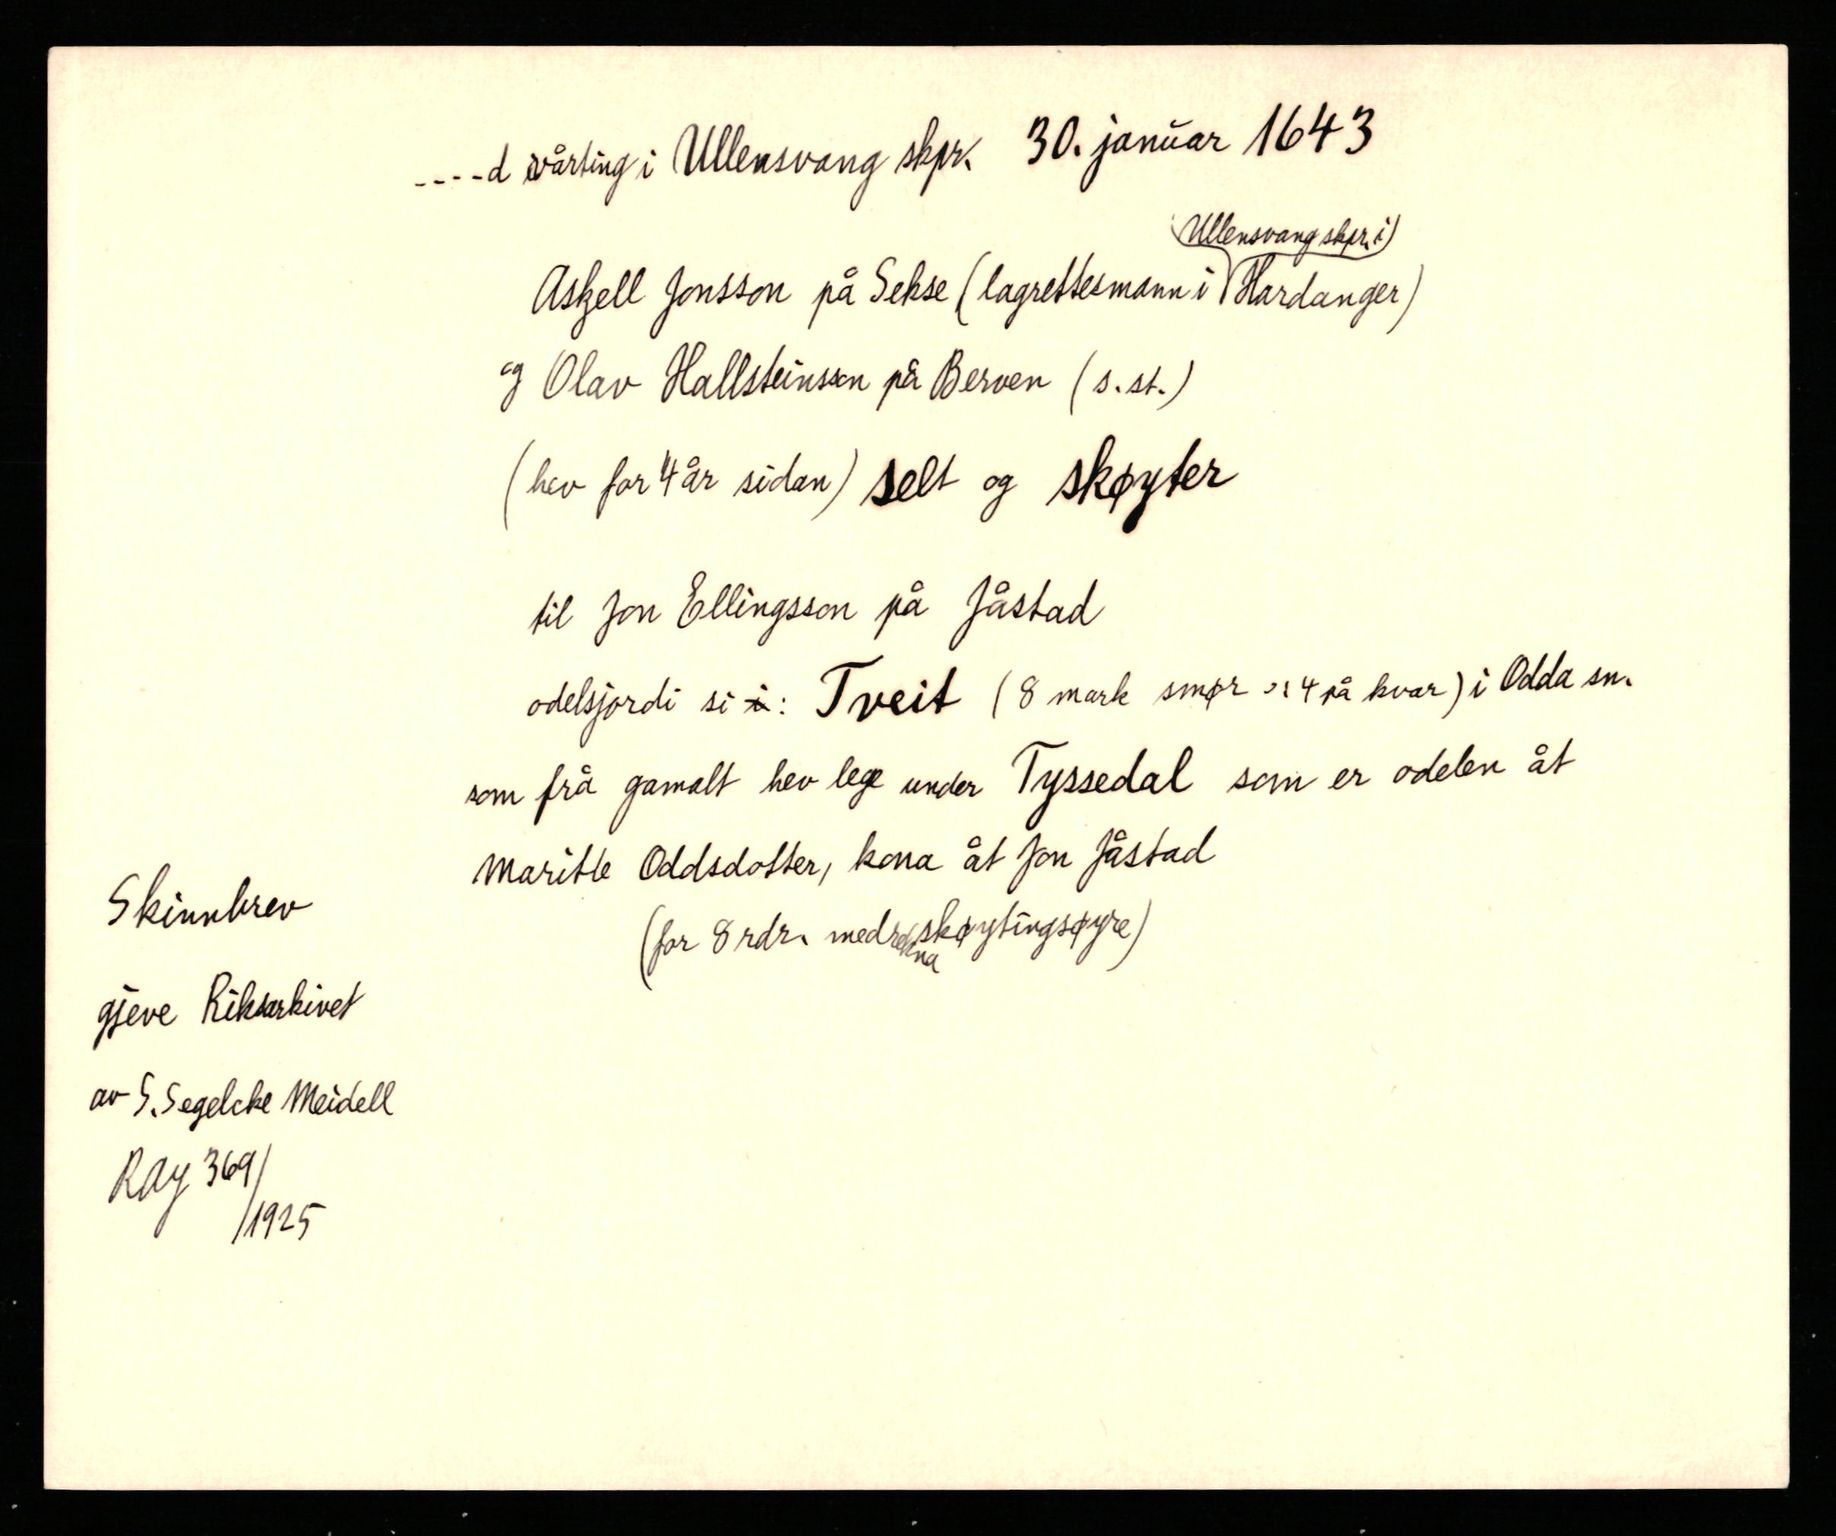 ----d vårting i Ullensvang skpr. 30. januar 1643
Ullensvang skpr. i
Askell Jonsson på Sekse (lagrettesmann i Hardanger)
og Olav Hallsteinsson på Berven (s.st.)
(hev for 4 år sidan) selt og skøyter
til Jon Ellingsson på Jåstad
odelsjordi si i: Tveit (8 mark smør ɔ: 4 på kvar) i Odda sn.
som frå gamalt hev lege under Tyssedal som er odelen åt
Maritte Oddsdotter, kona åt Jon Jåstad
(for 8 rdr. medrekna skøytingsøyre)
Skinnbrev
gjeve Riksarkivet
av S. Segelcke Meidell
RAy 369/
/1925